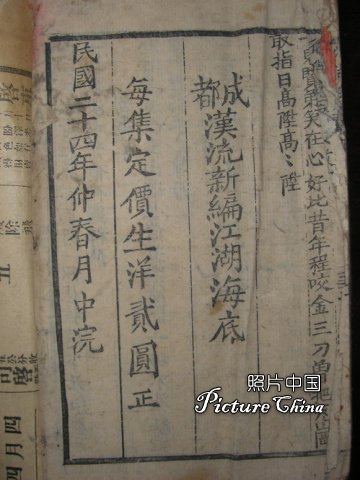 賢弟笑在心好比昔年程咬金三刀曾把
取指日高陞高〻陞
成都漢流新編江湖海底
每集定價生洋貳圓正
民國二十四年仲春月中浣
啓
五
司啓
四月四
照片中国
Picture China